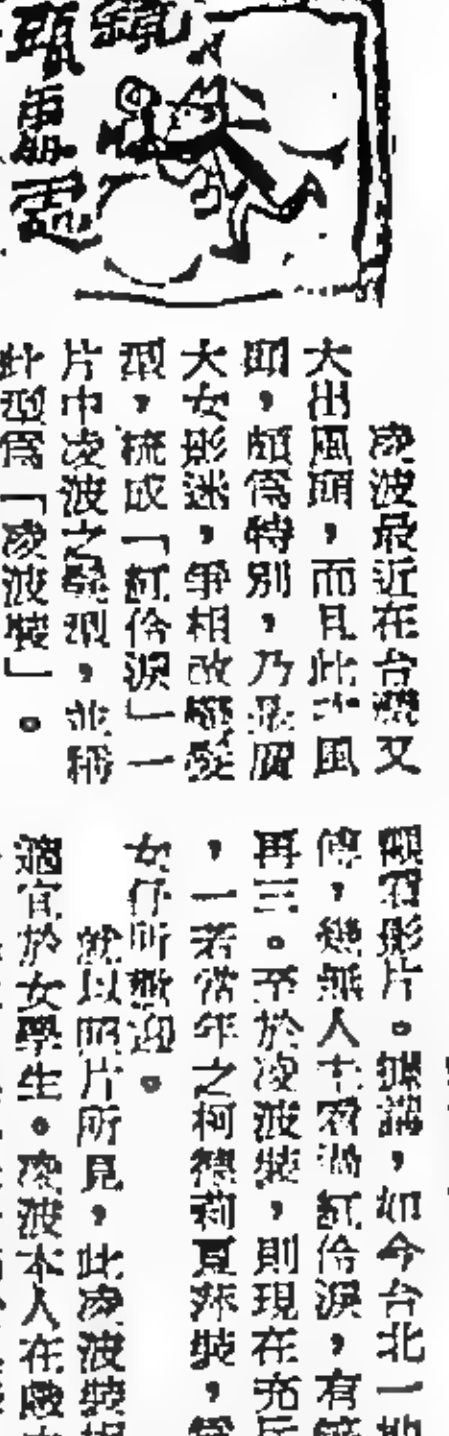 鏡頭
凌波最近在台灣又
大出風頭，而且此次風
頭，頗爲特別，乃是廣
大女影迷，爭相改變髮
型，梳成「紅伶淚」一
片中凌波之髮型，並稱
此型爲「凌波裝」。
觀看影片。據講，如今台北一地
傳，幾無人不看過紅伶淚，有
再三。至於凌波裝，則現在充斥
，一若當年之柯德莉夏萍裝，爲
女仔所歡迎。
就以照片所見，此凌波裝
適宜於女學生。凌波本人在戲